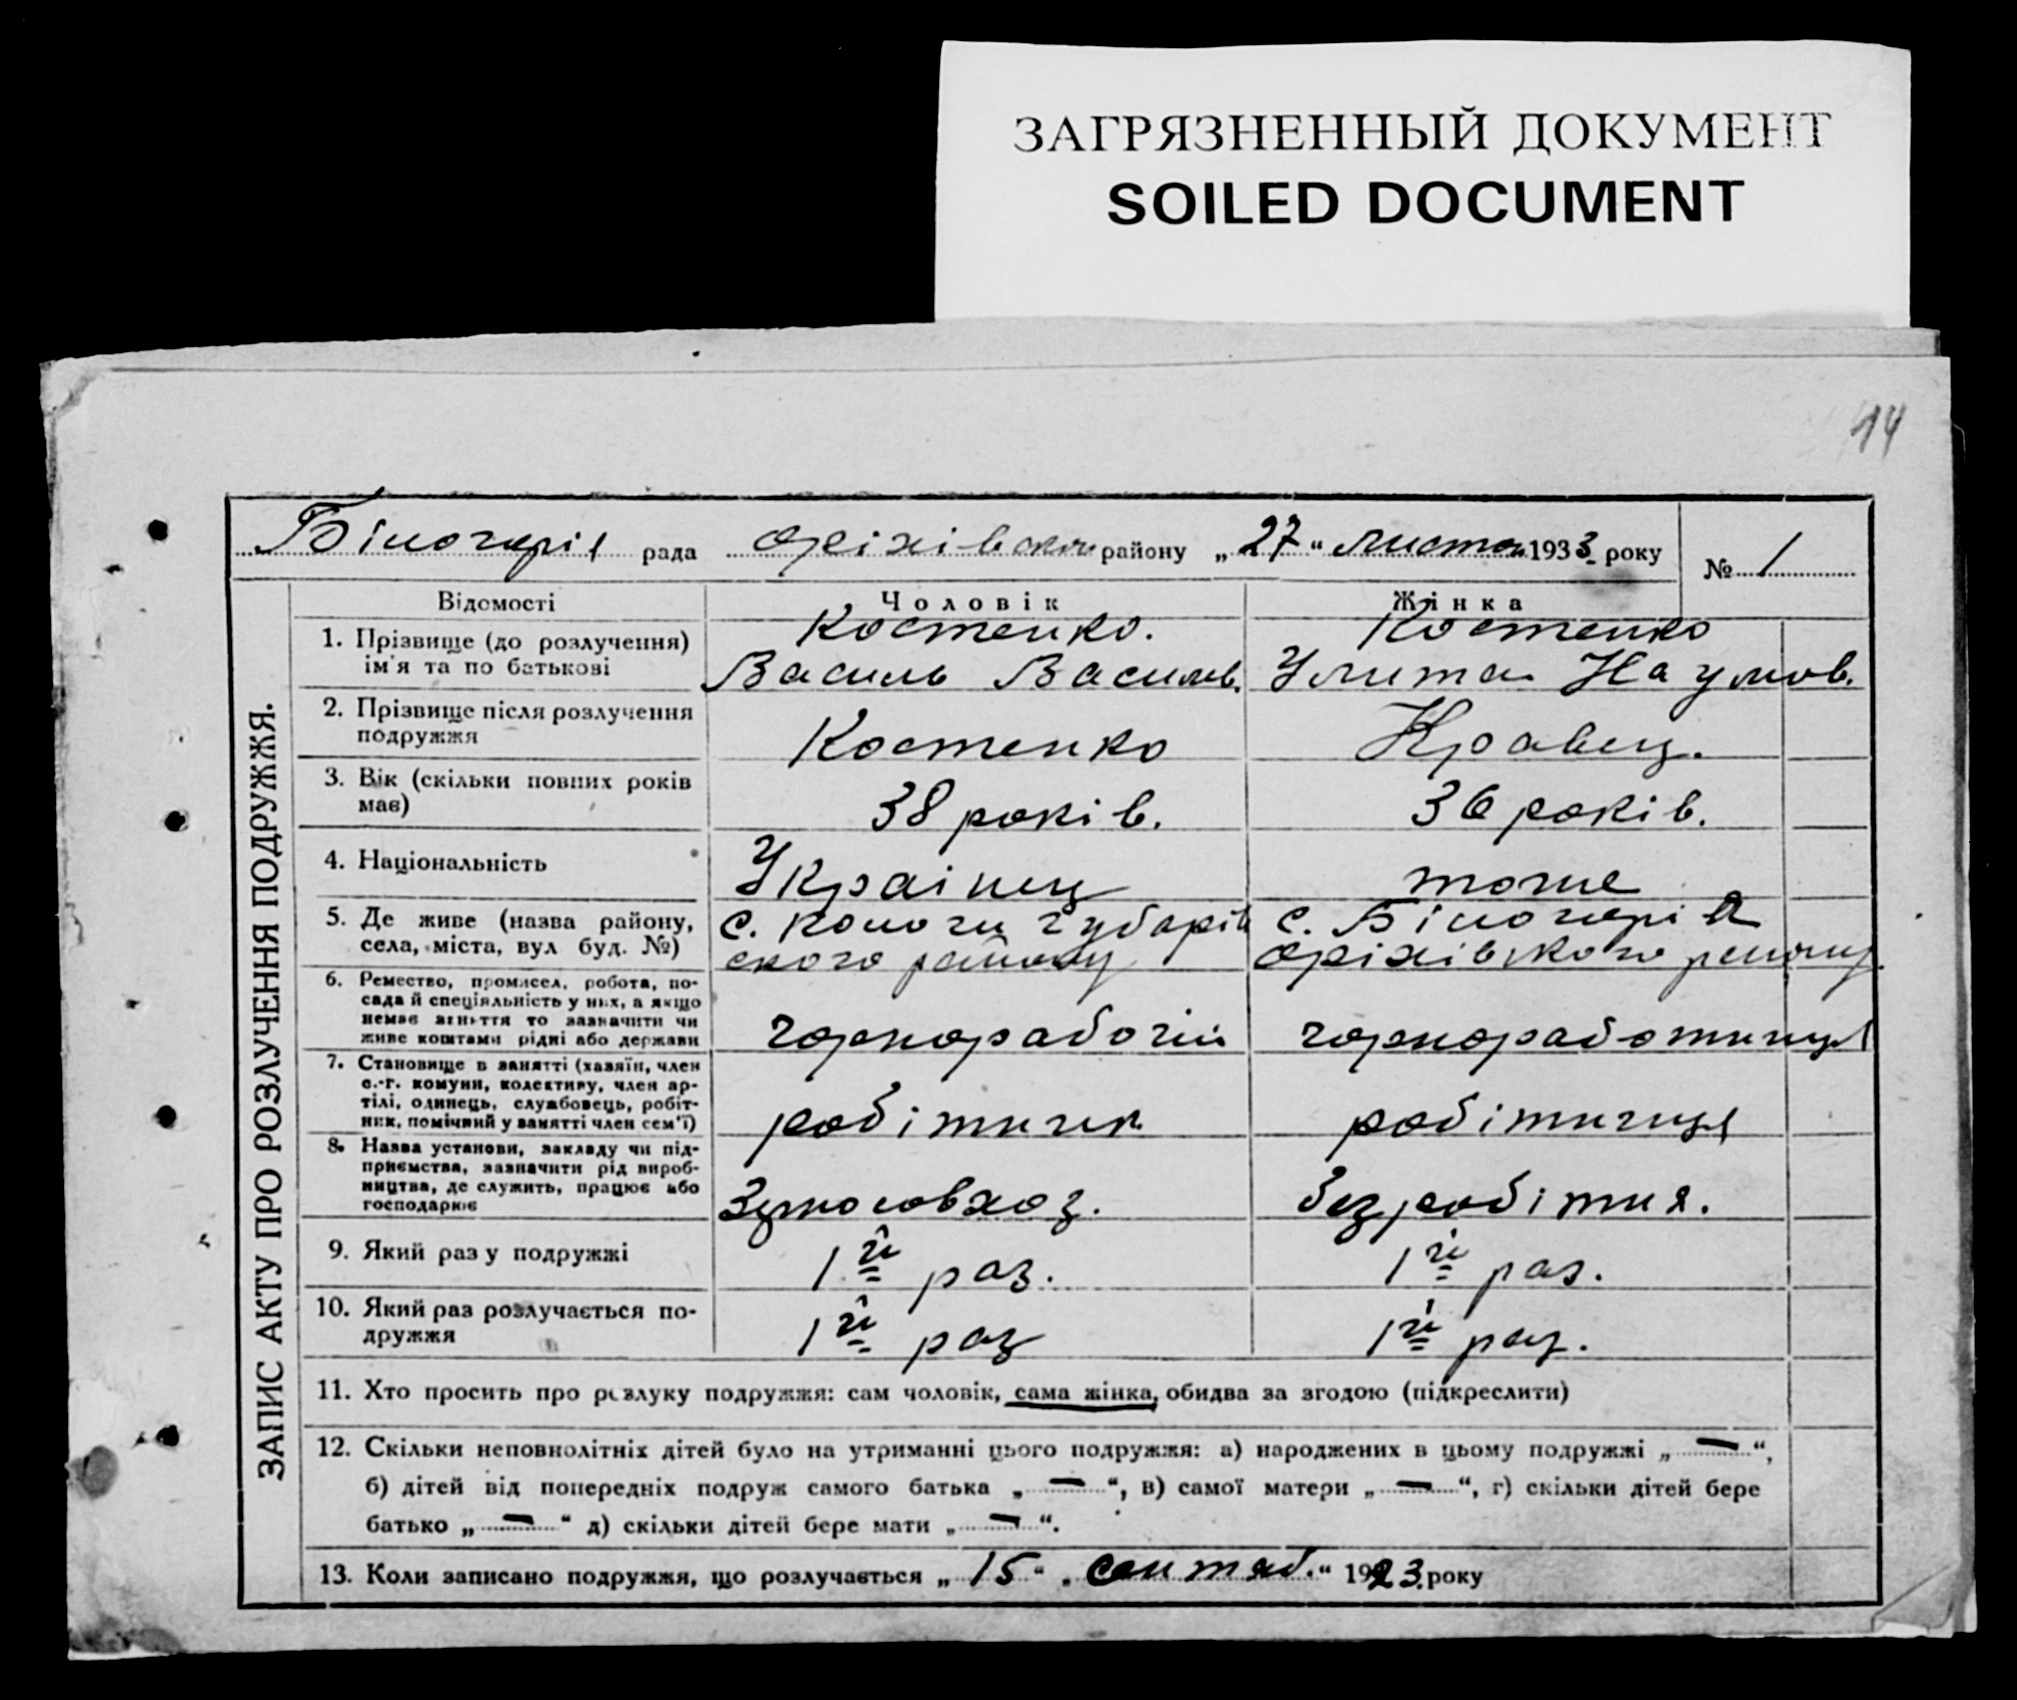 ЗАГРЯЗНЕННЫЙ ДОКУМЕНТ
SOILED DOCUMENT
44
Білогорія рада Оріхівськ району „27“ листоп 1933 року № 1
ЗАПИС АКТУ ПРО РОЗЛУЧЕННЯ ПОДРУЖЖЯ.
Відомості Чоловік Жінка
1. Прізвище (до розлучення) Костенко. Костенко
ім'я та по батькові Василь Василів. Улита Наумов.
2. Прізвище після розлучення
подружжя Костенко Кравец.
3. Вік (скільки повних років
має) 38 років. 36 років.
4. Національність Украінец тоже
5. Де живе (назва району, с. Копани Губарів с. Білогорія
села, міста, вул буд. №) ского району Оріхівского району
6. Ремество, промисел, робота, по-
сада й спеціяльність у них, а якщо
немає зняття то зазначити чи
живе коштами рідні або держави чорнорабочий чорноработниця
7. Становище в занятті (хазяїн, член
с.-г. комуни, колективу, член ар-
тілі, одинець, службовець, робіт-
ник, помічний у занятті член сем'ї) робітник робітниця
8. Назва установи, закладу чи під-
приємства, зазначити рід вироб-
ництва, де служить, працює або
господарює Зерносовхоз. безробітня.
9. Який раз у подружжі 1й раз. 1й раз.
10. Який раз розлучається по-
дружжя 1й раз 1й раз.
11. Хто просить про розлуку подружжя: сам чоловік, сама жінка, обидва за згодою (підкреслити)
12. Скільки неповнолітніх дітей було на утриманні цього подружжя: а) народжених в цьому подружжі „—“,
б) дітей від попередніх подруж самого батька „—“, в) самої матери „—“, г) скільки дітей бере
батько „—“ д) скільки дітей бере мати „—“.
13. Коли записано подружжя, що розлучається „15“ „сентяб.“ 1923 року